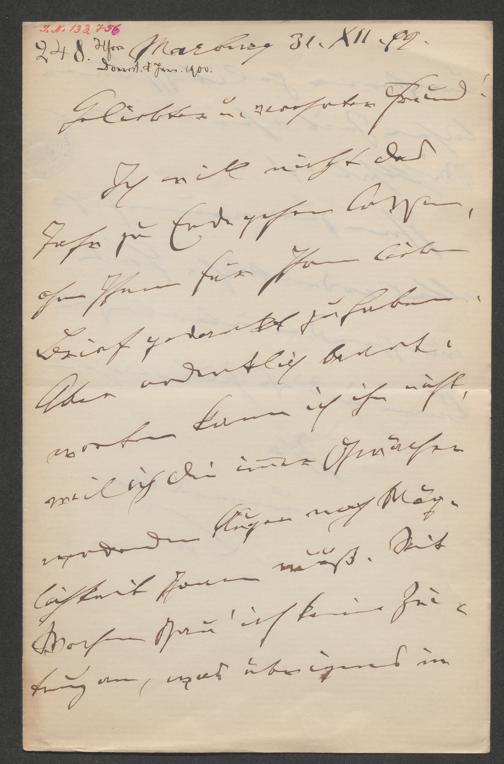 I.N. 132.756
248. Marburg 31. XII. 99.
Geliebter u. verehrter Freund!
Ich will nicht das
Jahr zu Ende gehen lassen,
ohne Ihnen für Ihren lieben
Brief gedankt zu haben.
Aber ordentlich beant-
worten kann ich ihn nicht,
weil ich die immer schwächer
werdenden Augen nach Mög-
lichkeit schonen muß. Seit
Wochen schau' ich keine Zei-
tung an, was übrigens in